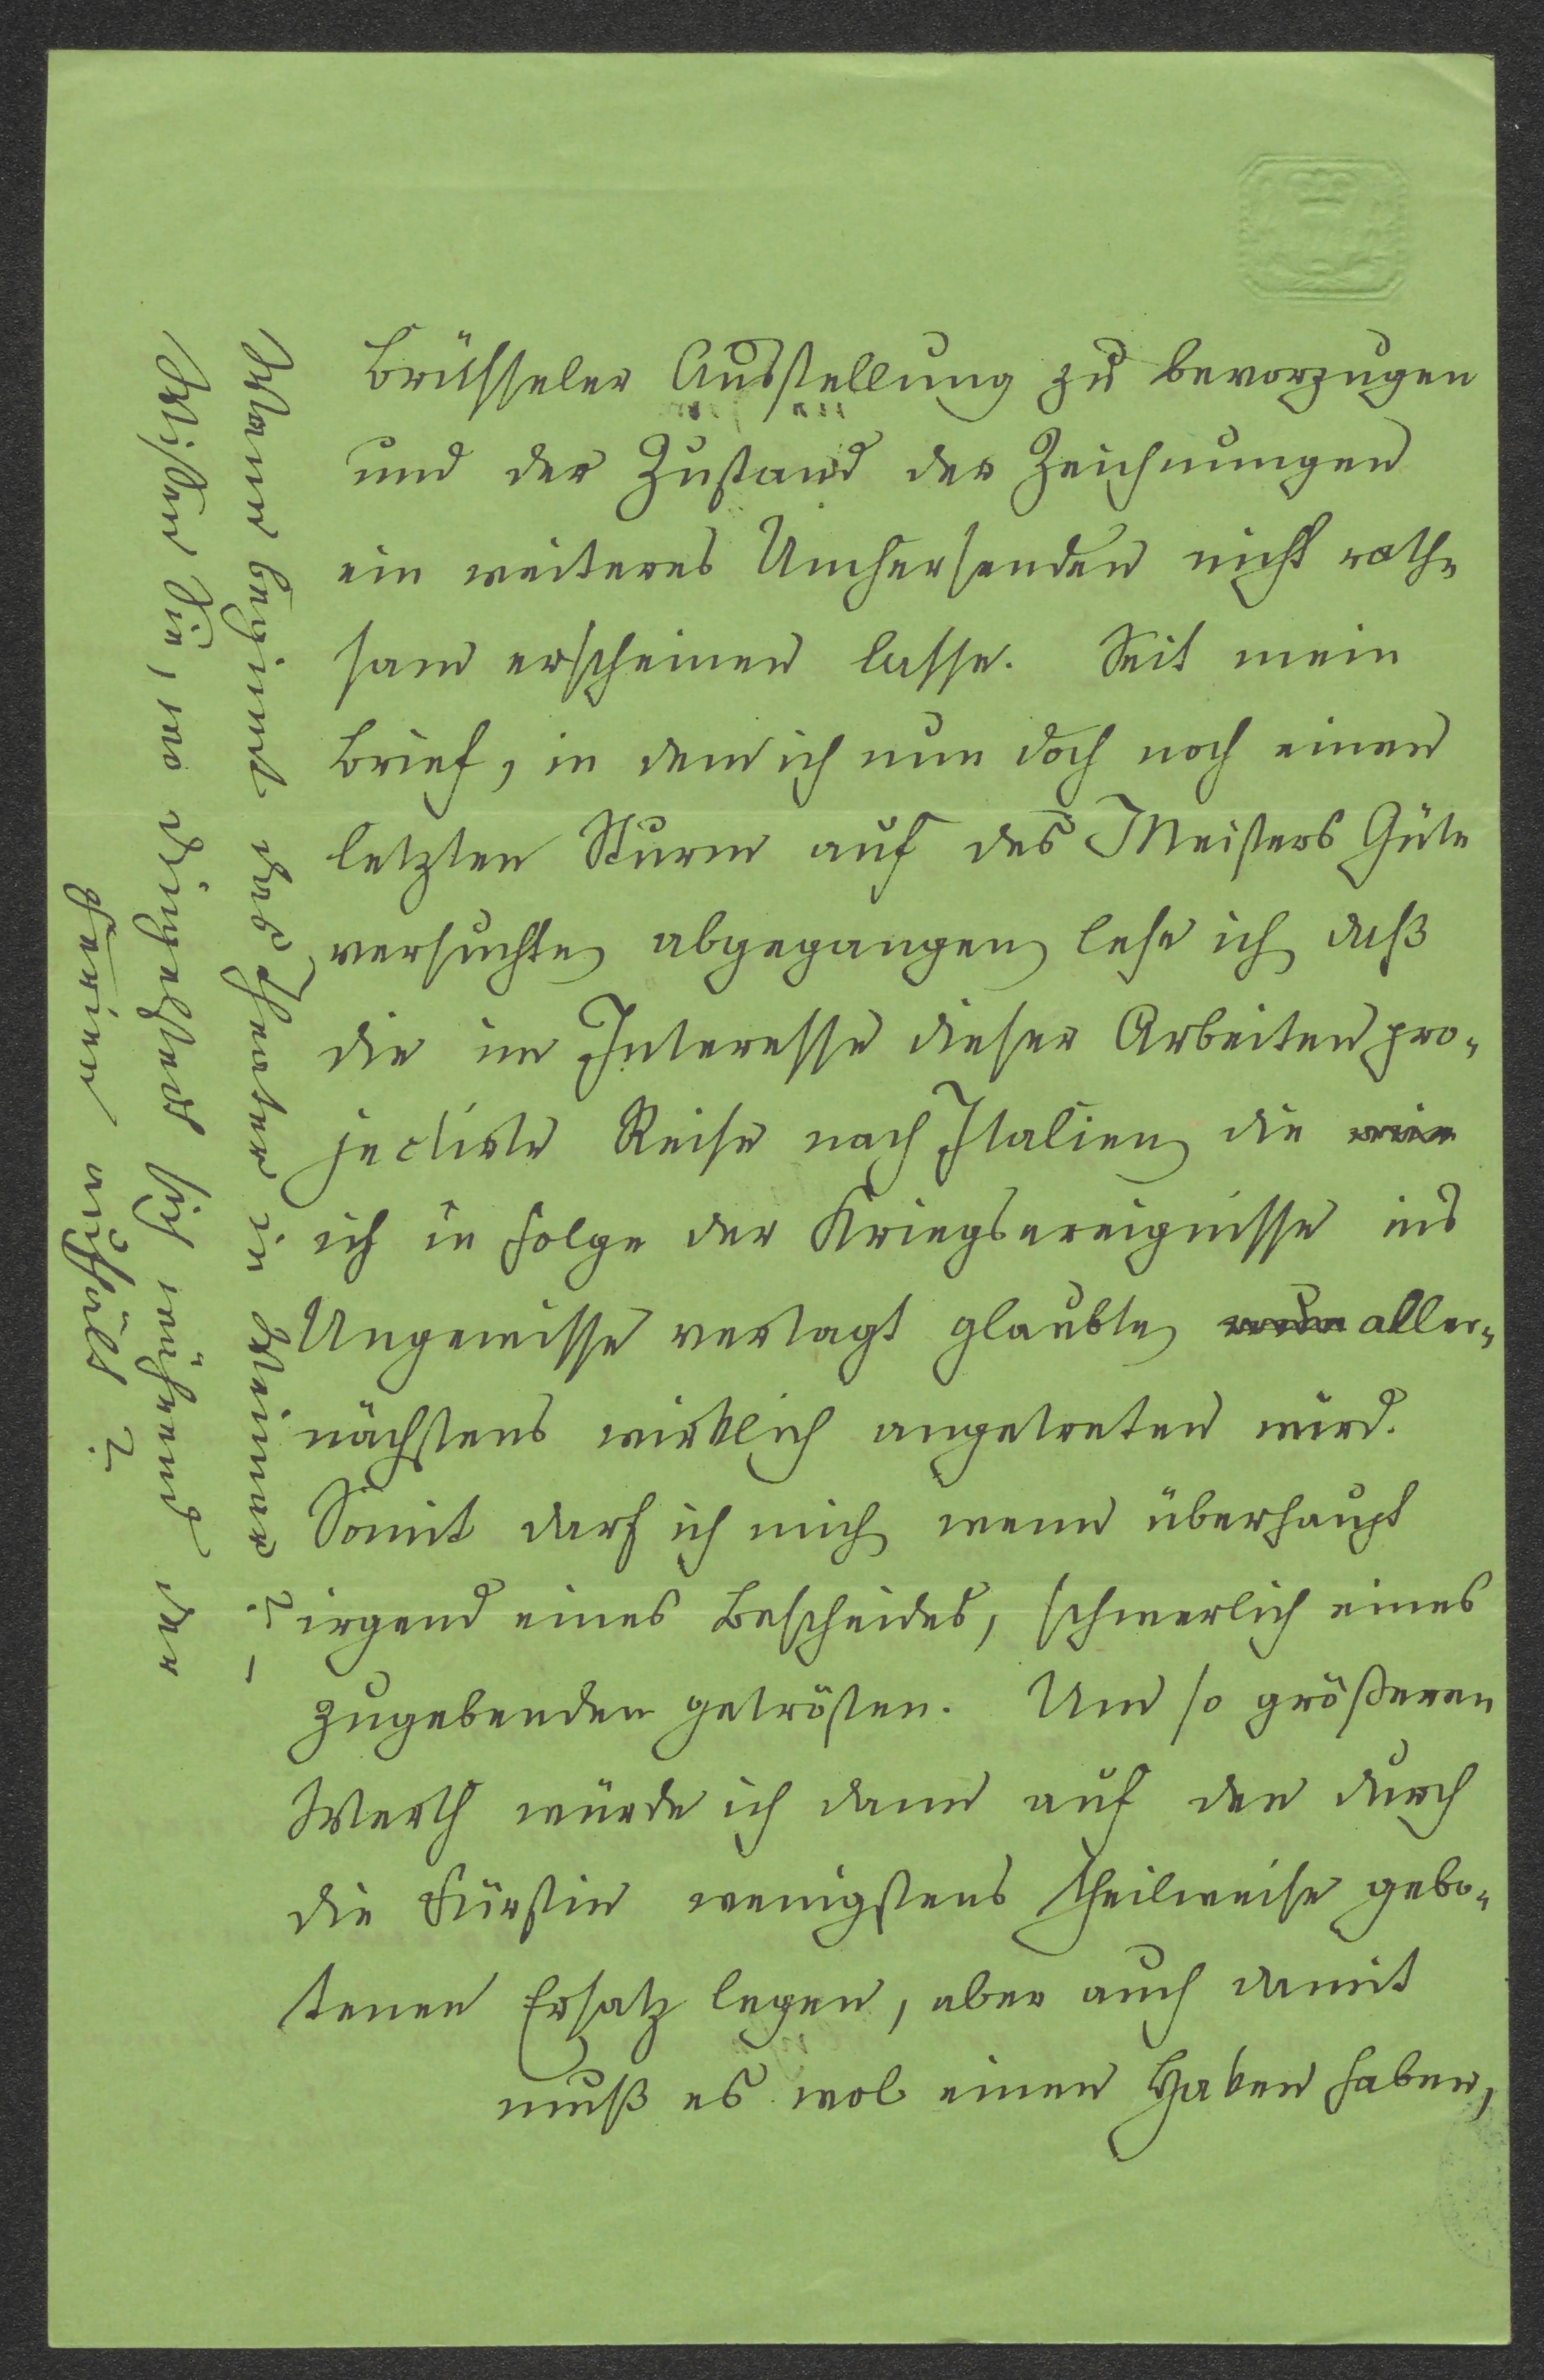 Brüsseler Ausstellung zu bevorzugen
und der Zustand der Zeichnungen
ein weiteres Umhersenden nicht rath-
sam erscheinen lasse. Seit mein
Brief, in dem ich nun doch noch einen
letzten Sturm auf des Meisters Güte
versuchte, abgegangen, lese ich, daß
die im Interesse dieser Arbeiten pro-
jectirte Reise nach Italien, die
ich in Folge der Kriegsereignisse ins
Ungewisse vertagt glaubte, aller-
nächstens wirklich angetreten wird.
Somit darf ich mich, wenn überhaupt
irgend eines Bescheides, schwerlich eines
zugebenden getrösten. Um so größeren
Werth würde ich dann auf den durch
die Fürstin wenigstens theilweise gebo-
tenen Ersatz legen, aber auch damit
muß es wol einen Haken haben,
Wann beginnt das Theater in Weimar? –
Wissen Sie, wo Dingelstedt sich während der
Ferien aufhält?